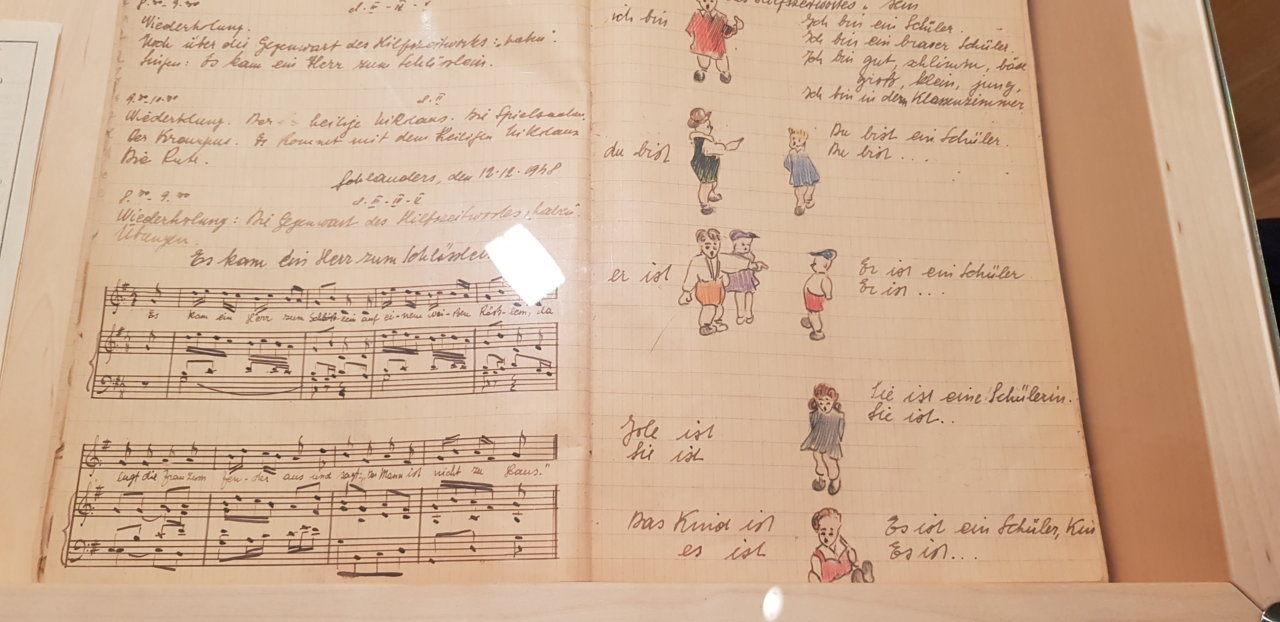 8.00-9.00 d. II - IV - V
Wiederholung.
Noch über die Gegenwart des Hilfszeitworts: „haben".
Singen: Es kam ein Herr zum Schlösslein.
9.00-10.00 d. II
Wiederholung. Der heilige Niklaus. Die Spielsachen.
Der Krampus. Er kommt mit dem Heiligen Niklaus
Die Rute.
Schlanders, den 12.12.1948
8.00-9.00 d. II - IV - V
Wiederholung: Die Gegenwart des Hilfszeitwortes „haben".
Übungen.
Es kam ein Herr zum Schlösslein
Es kam ein Herr zum Schlöss-lein auf ei-nem wei-ßen Röss-lein, da
lugt die Frau zum Fen-ster aus und sagt: „Der Mann ist nicht zu Haus."
Hilfszeitwortes „sein
ich bin
Ich bin ein Schüler.
Ich bin ein braver Schüler.
Ich bin gut, schlimm, böse
groß, klein, jung,
Ich bin in dem Klassenzimmer
du bist
Du bist ein Schüler.
Du bist ...
er ist
Er ist ein Schüler
Er ist ...
Jole ist
Sie ist
Sie ist eine Schülerin.
Sie ist..
Das Kind ist
es ist
Es ist ein Schüler, Kin
Es ist...